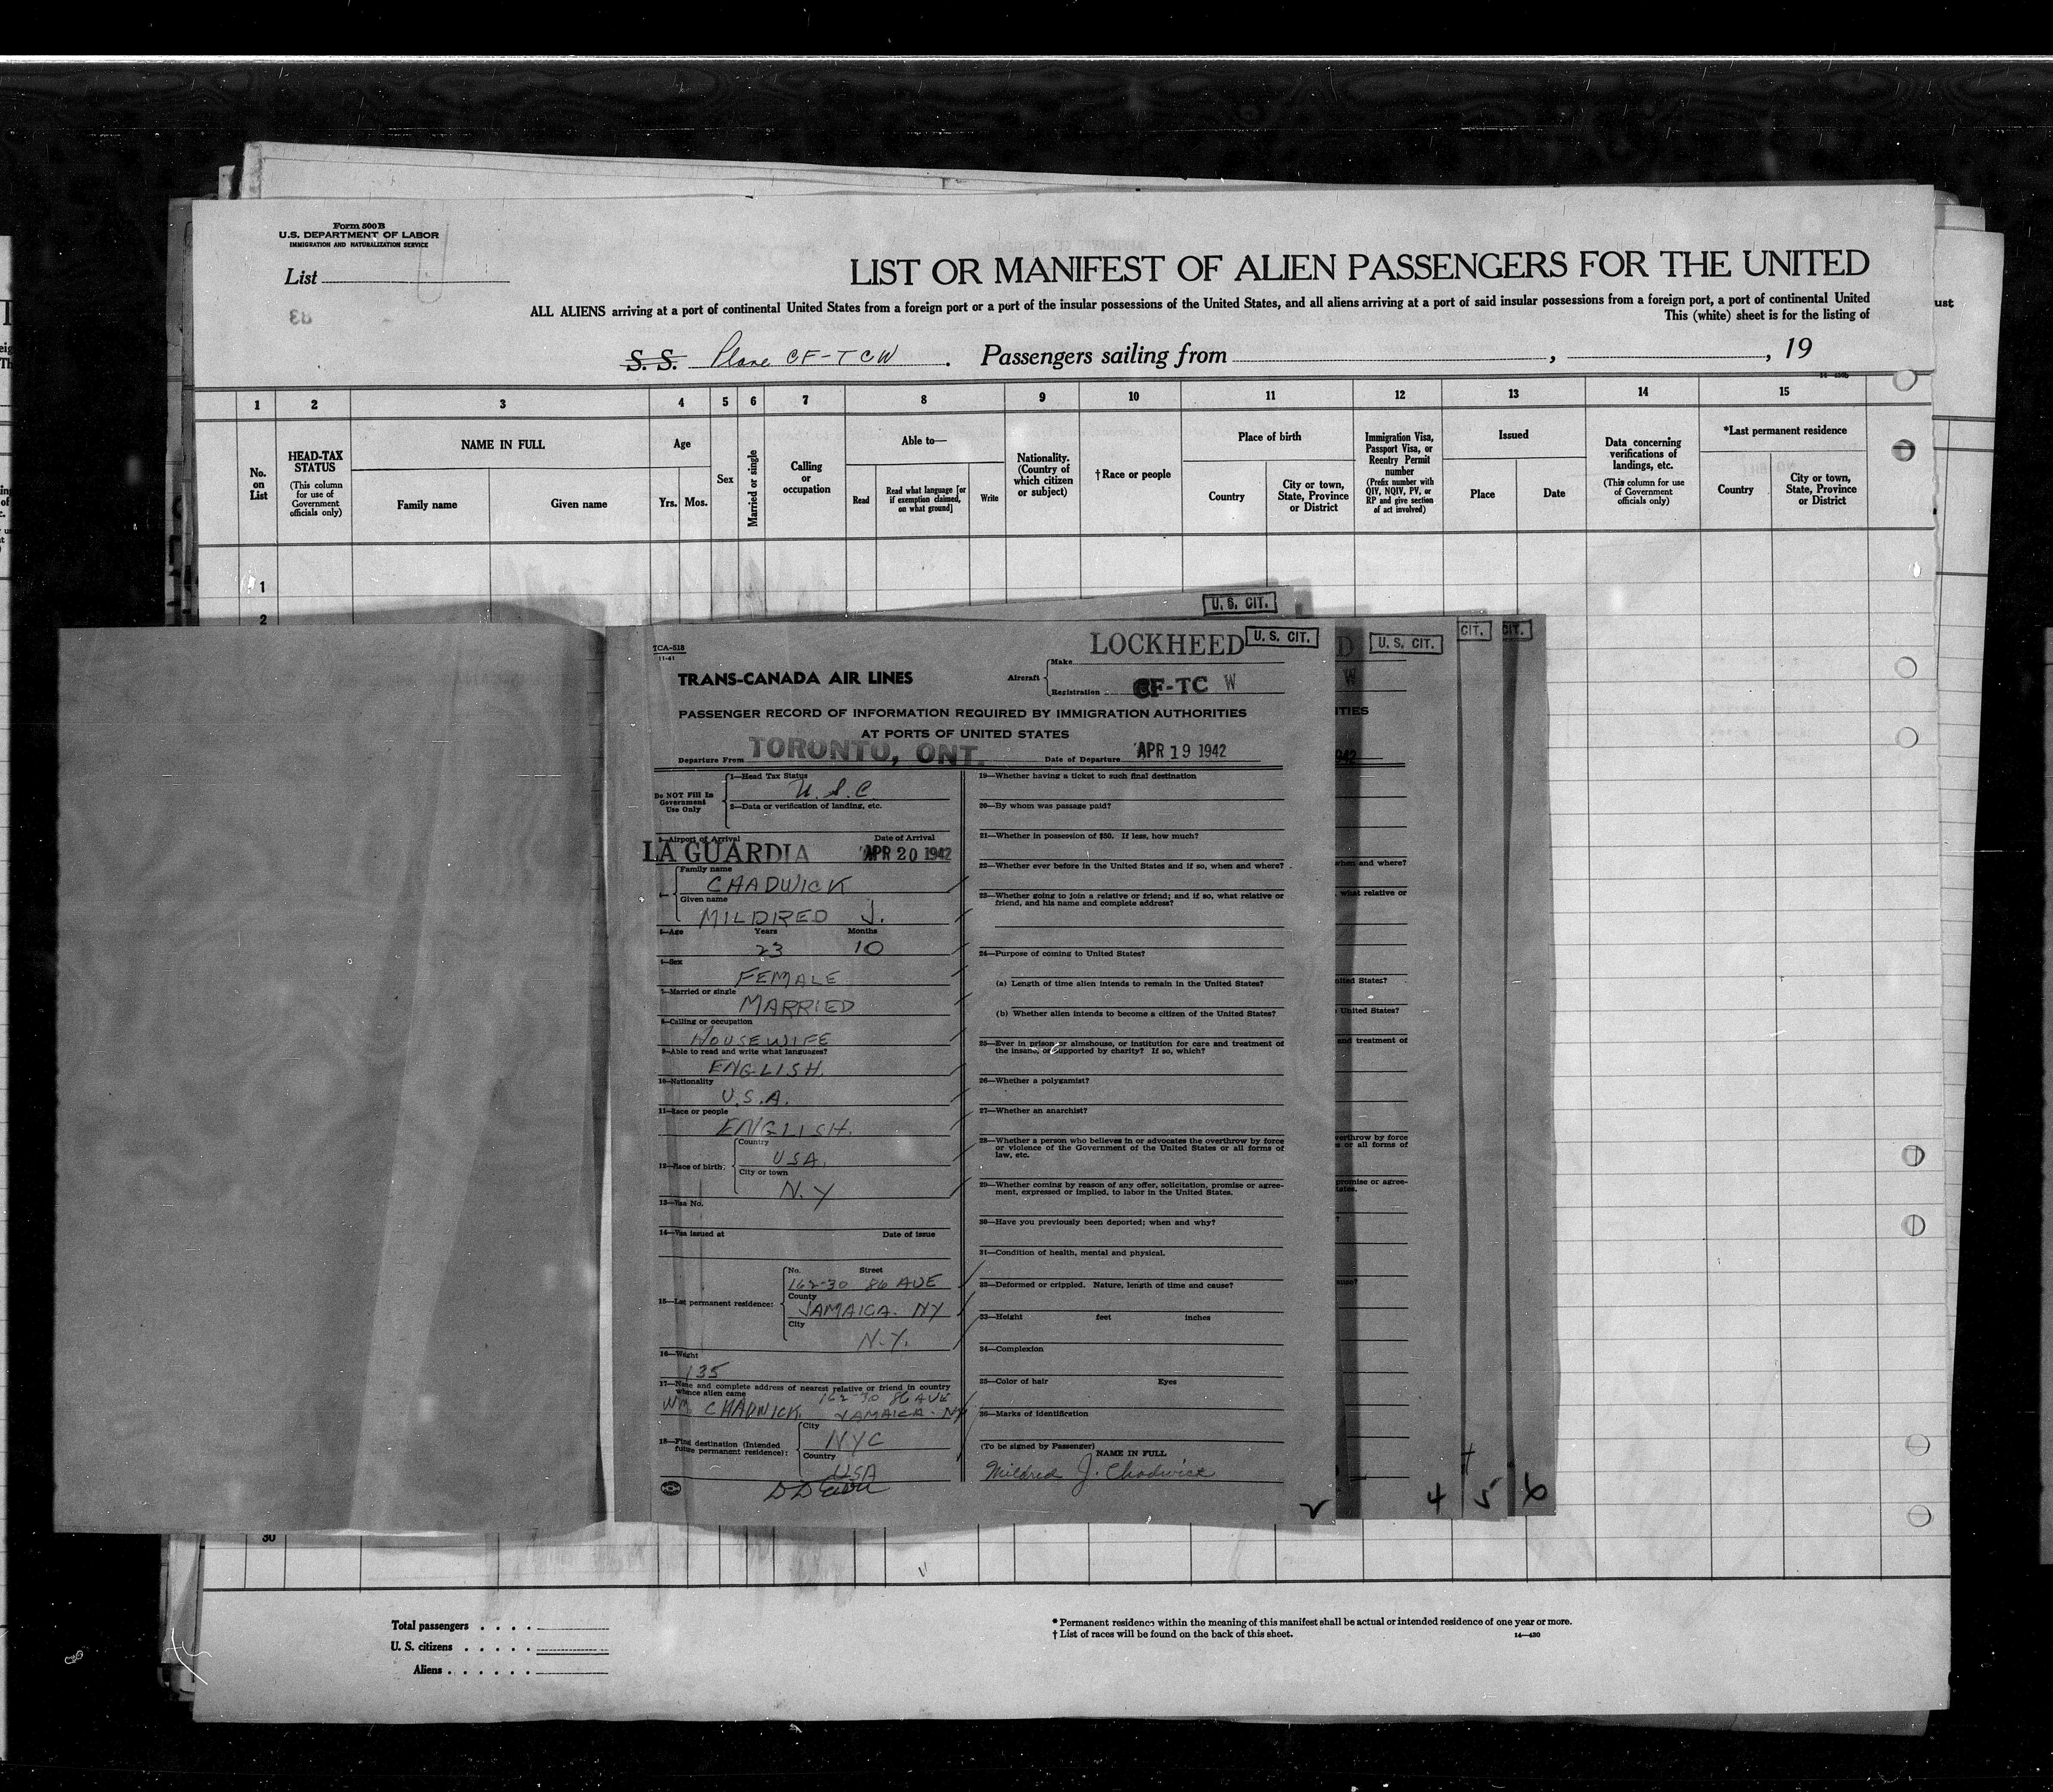 Form 500 B
U.S. DEPARTMENT OF LABOR
IMMIGRATION AND NATURALIZATION SERVICE
List
LIST OR MANIFEST OF ALIEN PASSENGERS FOR THE UNITED
ALL ALIENS arriving at a port of continental United States from a foreign port or a port of the insular possessions of the United States, and all aliens arriving at a port of said insular possessions from a foreign port, a port of continental United
This (white) sheet is for the listing of
S. S. Plane CF-TCW . Passengers sailing from , , 19
1 2 3 4 5 6 7 8 9 10 11 12 13 14 15
No. on List
HEAD-TAX STATUS
(This column for use of Government officials only)
NAME IN FULL
Family name
Given name
Age
Yrs. Mos.
Sex
Married or single
Calling or occupation
Able to—
Read
Read what language [or if exemption claimed, on what ground]
Write
Nationality. (Country of which citizen or subject)
†Race or people
Place of birth
Country
City or town, State, Province or District
Immigration Visa, Passport Visa, or Reentry Permit number
(Prefix number with QIV, NQIV, PV, or RP and give section of act involved)
Issued
Place
Date
Data concerning verifications of landings, etc.
(This column for use of Government officials only)
*Last permanent residence
Country
City or town, State, Province or District
1
2
U. S. CIT.
TCA-518
11-41
LOCKHEED U. S. CIT.
D U. S. CIT.
CIT. CIT.
TRANS-CANADA AIR LINES
Aircraft
Make
Registration CF-TC W
W
PASSENGER RECORD OF INFORMATION REQUIRED BY IMMIGRATION AUTHORITIES
AT PORTS OF UNITED STATES
Departure From TORONTO, ONT. Date of Departure APR 19 1942
Do NOT Fill In Government Use Only
1—Head Tax Status
U.S.C.
2—Data or verification of landing, etc.
3—Airport of Arrival Date of Arrival
LA GUARDIA APR 20 1942
Family name
CHADWICK
Given name
MILDRED J.
5—Age Years Months
23 10
6—Sex
FEMALE
7—Married or single
MARRIED
8—Calling or occupation
HOUSEWIFE
9—Able to read and write what languages?
ENGLISH.
10—Nationality
U.S.A.
11—Race or people
ENGLISH.
12—Place of birth:
Country
USA.
City or town
N.Y
13—Visa No.
14—Visa issued at Date of issue
15—Last permanent residence:
No. Street
162-30 86 AVE
County
JAMAICA. NY
City
N.Y.
16—Weight
135
17—Name and complete address of nearest relative or friend in country whence alien came
WM CHADWICK. 162-30 86 AVE
JAMAICA. NY
18—Final destination (Intended future permanent residence):
City
NYC
Country
USA
19—Whether having a ticket to such final destination
20—By whom was passage paid?
21—Whether in possession of $50. If less, how much?
22—Whether ever before in the United States and if so, when and where?
23—Whether going to join a relative or friend; and if so, what relative or friend, and his name and complete address?
24—Purpose of coming to United States?
(a) Length of time alien intends to remain in the United States?
(b) Whether alien intends to become a citizen of the United States?
25—Ever in prison or almshouse, or institution for care and treatment of the insane, or supported by charity? If so, which?
26—Whether a polygamist?
27—Whether an anarchist?
28—Whether a person who believes in or advocates the overthrow by force or violence of the Government of the United States or all forms of law, etc.
29—Whether coming by reason of any offer, solicitation, promise or agreement, expressed or implied, to labor in the United States.
30—Have you previously been deported; when and why?
31—Condition of health, mental and physical.
32—Deformed or crippled. Nature, length of time and cause?
33—Height feet inches
34—Complexion
35—Color of hair Eyes
36—Marks of identification
(To be signed by Passenger)
NAME IN FULL
Mildred J. Chadwick
2 4 5 6
30
Total passengers
U. S. citizens
Aliens
* Permanent residence within the meaning of this manifest shall be actual or intended residence of one year or more.
† List of races will be found on the back of this sheet.
14—430